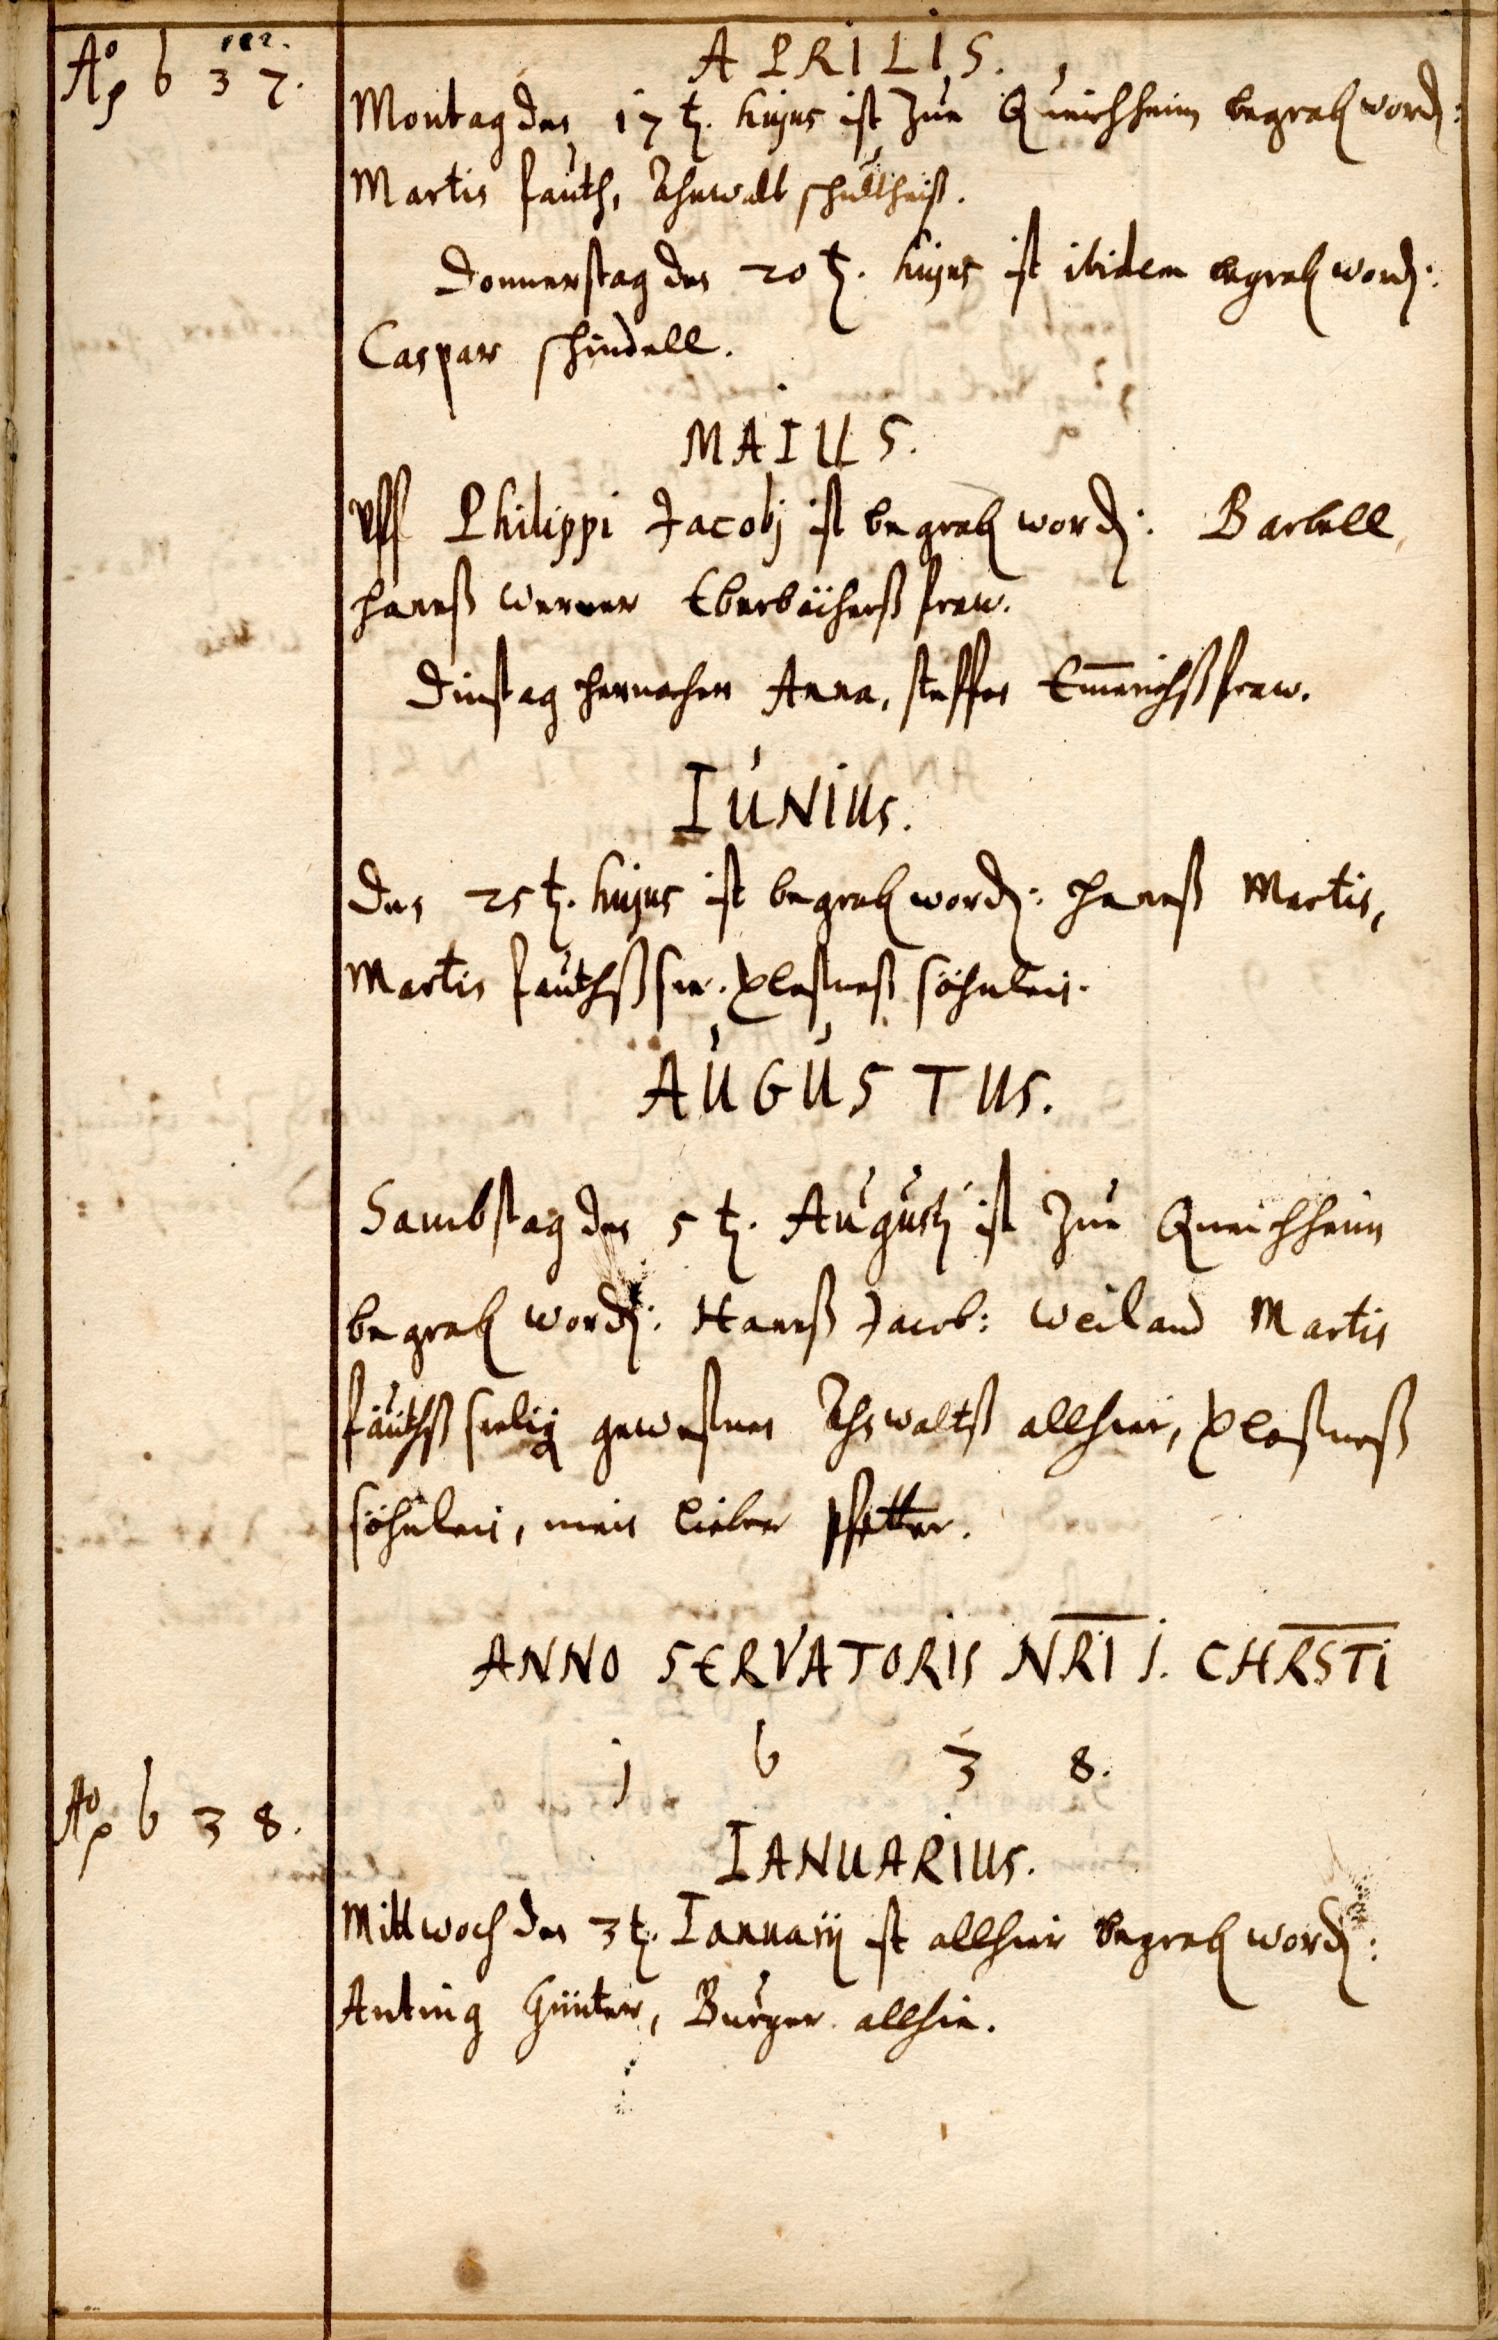 Aº 637.
APRILIS.
Montag den 17t. hujus ist zue Queichheim begrab word:
Martin fauth, Ahnwalt schultheiß.
Donnerstag den 20t. hujus ist ibidem begrab word:
Caspar schindell.
MAIUS.
Uff Philippi Jacobj ist begrab word: Barbell,
Hannß werner Eberbächerß fraw.
Dinstag hernacher Anna, steffen Em̄erichß fraw.
IUNIUS.
Den 25t. hujus ist begrab word: Hannß Martin,
Martin fauthß see. söhnlein.
AUGUSTUS.
Sambstag den 5t. Augustj ist zue Queichheim
begrab word: Hannß Jacob: weiland Martin
fauthß seelig gewesenen Ahnwaltß allhier,
söhnlein, mein lieber Pfetter.
ANNO SERVATORIS NRI J. CHRSTI
1638.
Aº 638.
IANUARIUS.
Mittwoch den 3t. Ianuarij ist allhier begrab word:
Günter, Burger allhie.